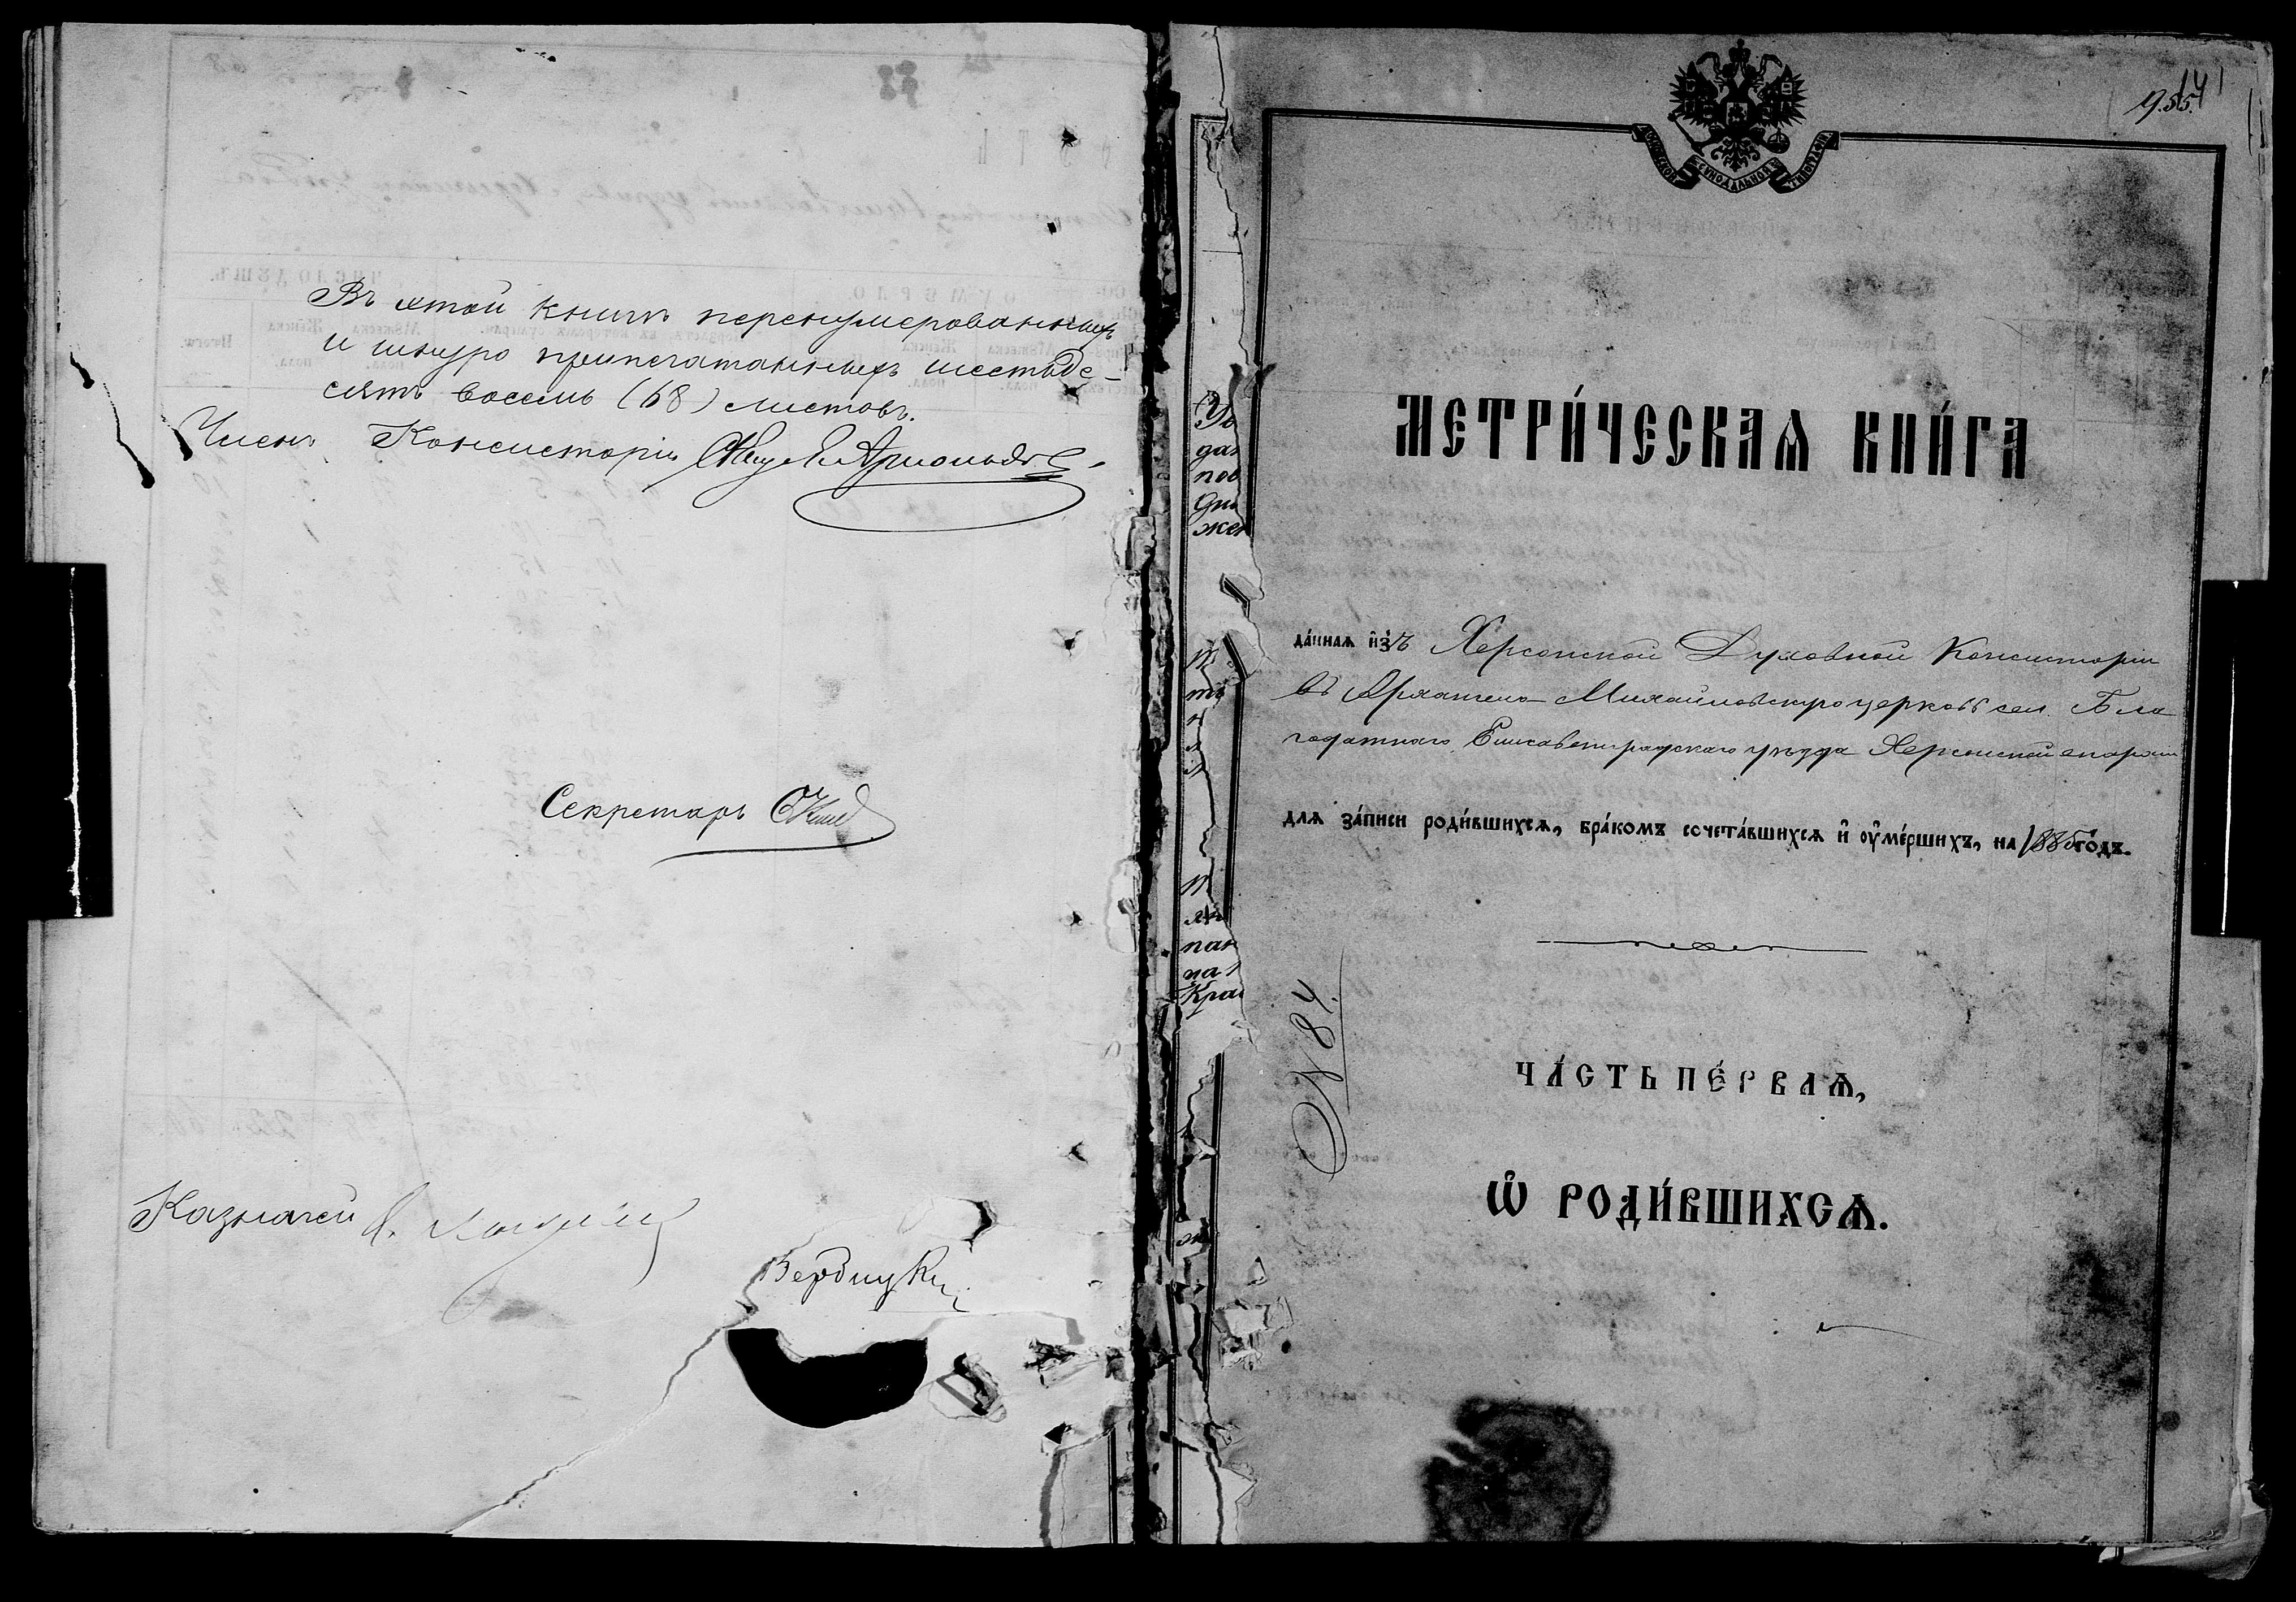 Въ этой книгѣ перенумерованныхъ
и шнуро припечатанныхъ шестьде-
сятъ восемь (68) листовъ.
Членъ Консисторіи
Секретарь
Казначей
Вербицкій
141
МЕТРИ́ЧЕСКАѦ КНИ́ГА
да́ннаѧ и҆зъ Херсонской Духовной Консисторіи
въ Архангело-Михайловскую церковь сел. Бла
годатнаго Елисаветградскаго уѣзда Херсонской епархіи
длѧ за́писи роди́вшихсѧ, бра́комъ сочета́вшихсѧ и҆ оу҆ме́ршихъ, на 1885 го́дъ.
№ 84.
ЧА́СТЬ ПЕ́РВАѦ,
Ѡ҆ РОДИ́ВШИХСѦ.